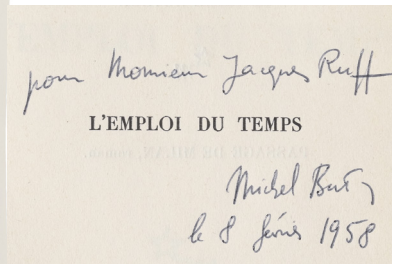 pour Monsieur Jacques Ruff
L'EMPLOI DU TEMPS
Michel Butor
le 8 février 1958